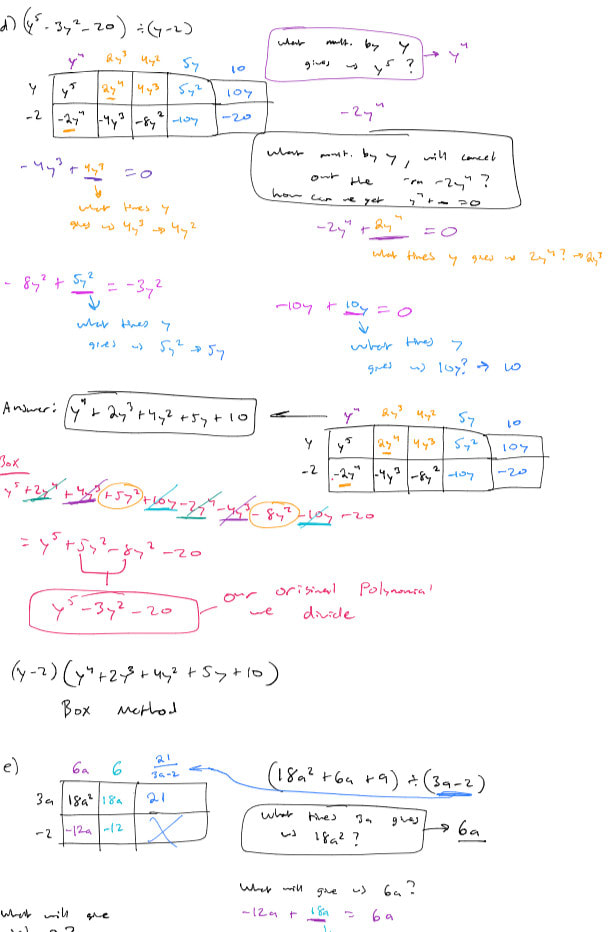 d) (y⁵ - 3y² - 20) ÷ (y - 2)
what mult. by y
gives us y⁵ ? → y⁴
y⁴ 2y³ 4y² 5y 10
y y⁵ 2y⁴ 4y³ 5y² 10y
-2 -2y⁴ -4y³ -8y² -10y -20
-2y⁴
what mult. by y, will cancel
out the -2y⁴ ?
how can we get y⁴ + = 0
-4y³ + 4y³ = 0
what times y
gives us 4y³ → 4y²
-2y⁴ + 2y⁴ = 0
what times y gives us 2y⁴? → 2y³
-8y² + 5y² = -3y²
what times y
gives us 5y² → 5y
-10y + 10y = 0
what times y
gives us 10y? → 10
Answer: y⁴ + 2y³ + 4y² + 5y + 10 ←
y⁴ 2y³ 4y² 5y 10
y y⁵ 2y⁴ 4y³ 5y² 10y
-2 -2y⁴ -4y³ -8y² -10y -20
Box
y⁵ + 2y⁴ + 4y³ + 5y² + 10y - 2y⁴ - 4y³ - 8y² - 10y - 20
= y⁵ + 5y² - 8y² - 20
y⁵ - 3y² - 20
our original Polynomial
we divide
(y-2)(y⁴ + 2y³ + 4y² + 5y + 10)
Box Method
e) (18a² + 6a + 9) ÷ (3a - 2)
6a 6 21/3a-2
3a 18a² 18a 21
-2 -12a -12
What times 3a gives
us 18a² ? → 6a
What will give us 6a?
-12a + 18a = 6a
What will give